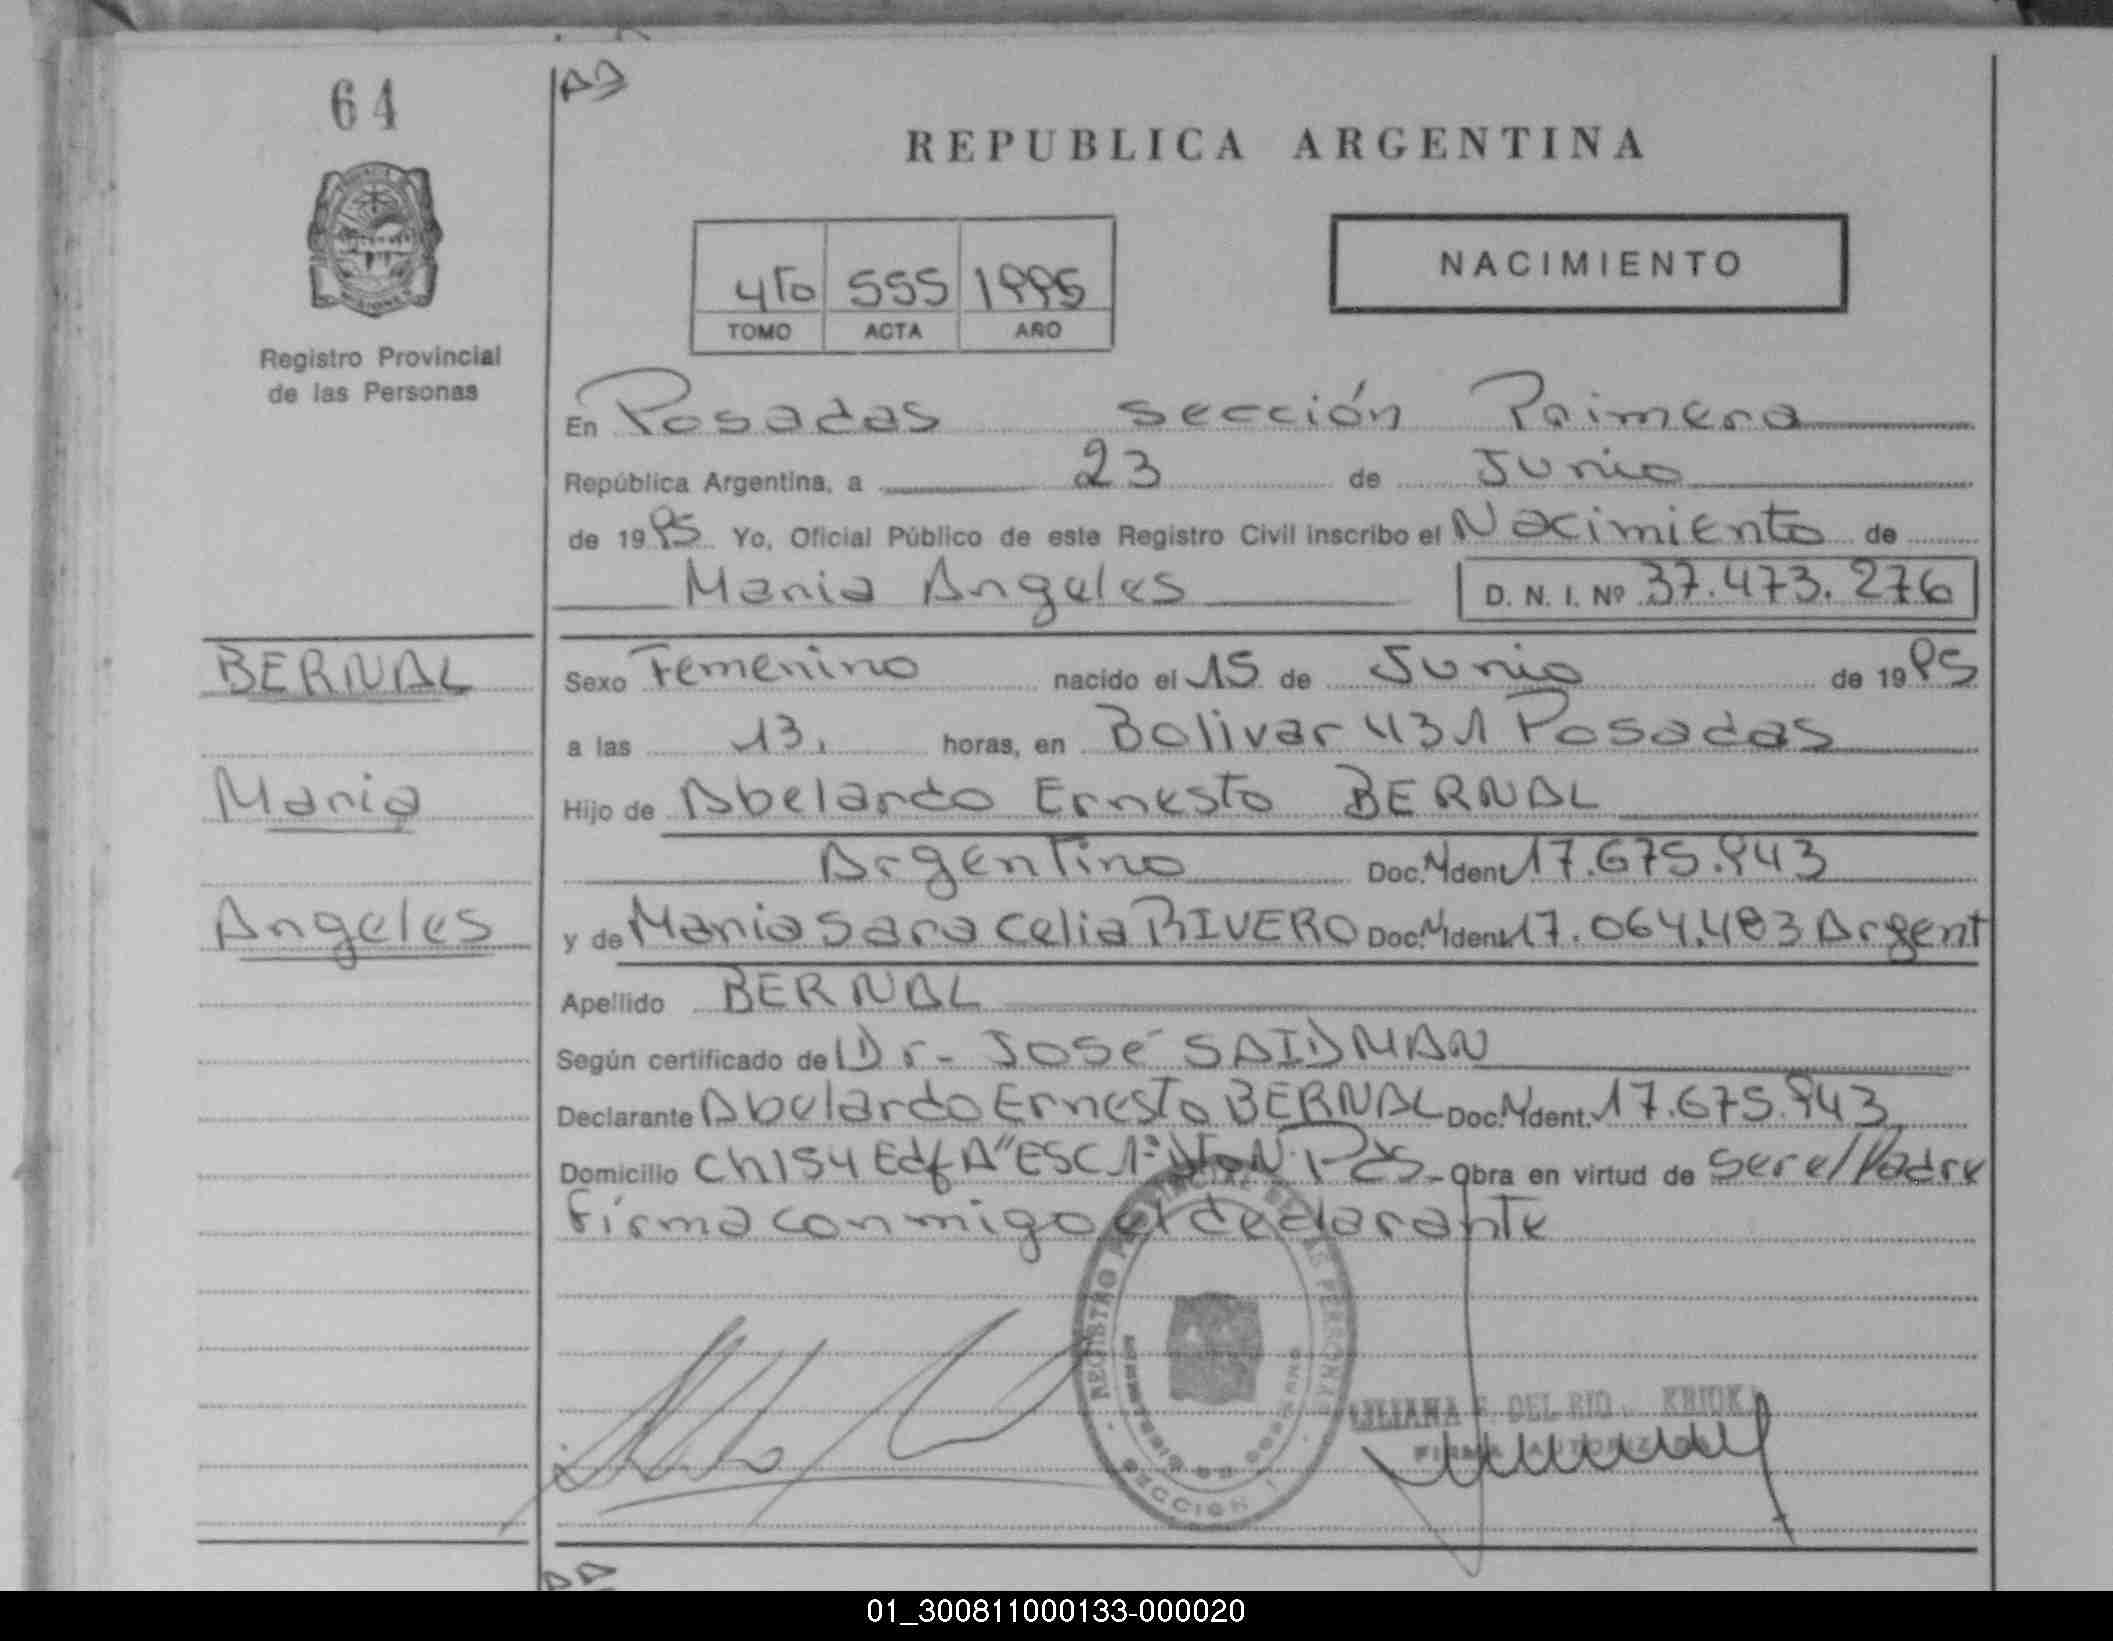 64
REPUBLICA ARGENTINA
NACIMIENTO
4to 555 1995
TOMO ACTA AÑO
Registro Provincial
de las Personas
En Posadas sección Primera
República Argentina, a 23 de Junio
de 1995 Yo, Oficial Público de este Registro Civil inscribo el Nacimiento de
Maria Angeles D. N. I. Nº 37.473.276
BERNAL
Maria
Angeles
Sexo Femenino nacido el 15 de Junio de 1995
a las 13, horas, en Bolivar 431 Posadas
Hijo de Abelardo Ernesto BERNAL
Argentino Doc. Ident. 17.675.943
y de Maria Sara Celia RIVERO Doc. Ident. 17.064.483 Argent
Apellido BERNAL
Según certificado de Dr- José SAIDMAN
Declarante Abelardo Ernesto BERNAL Doc. Ident. 17.675.943
Domicilio Ch154 Edf A" ESC 1º Pdas- Obra en virtud de ser el Padre
Firma conmigo el declarante
REGISTRO PROVINCIAL DE LAS PERSONAS
MINISTERIO DE GOBIERNO
SECCION 1
LILIANA E. DEL RIO KRIUK
FIRMA AUTORIZADA
01_300811000133-000020